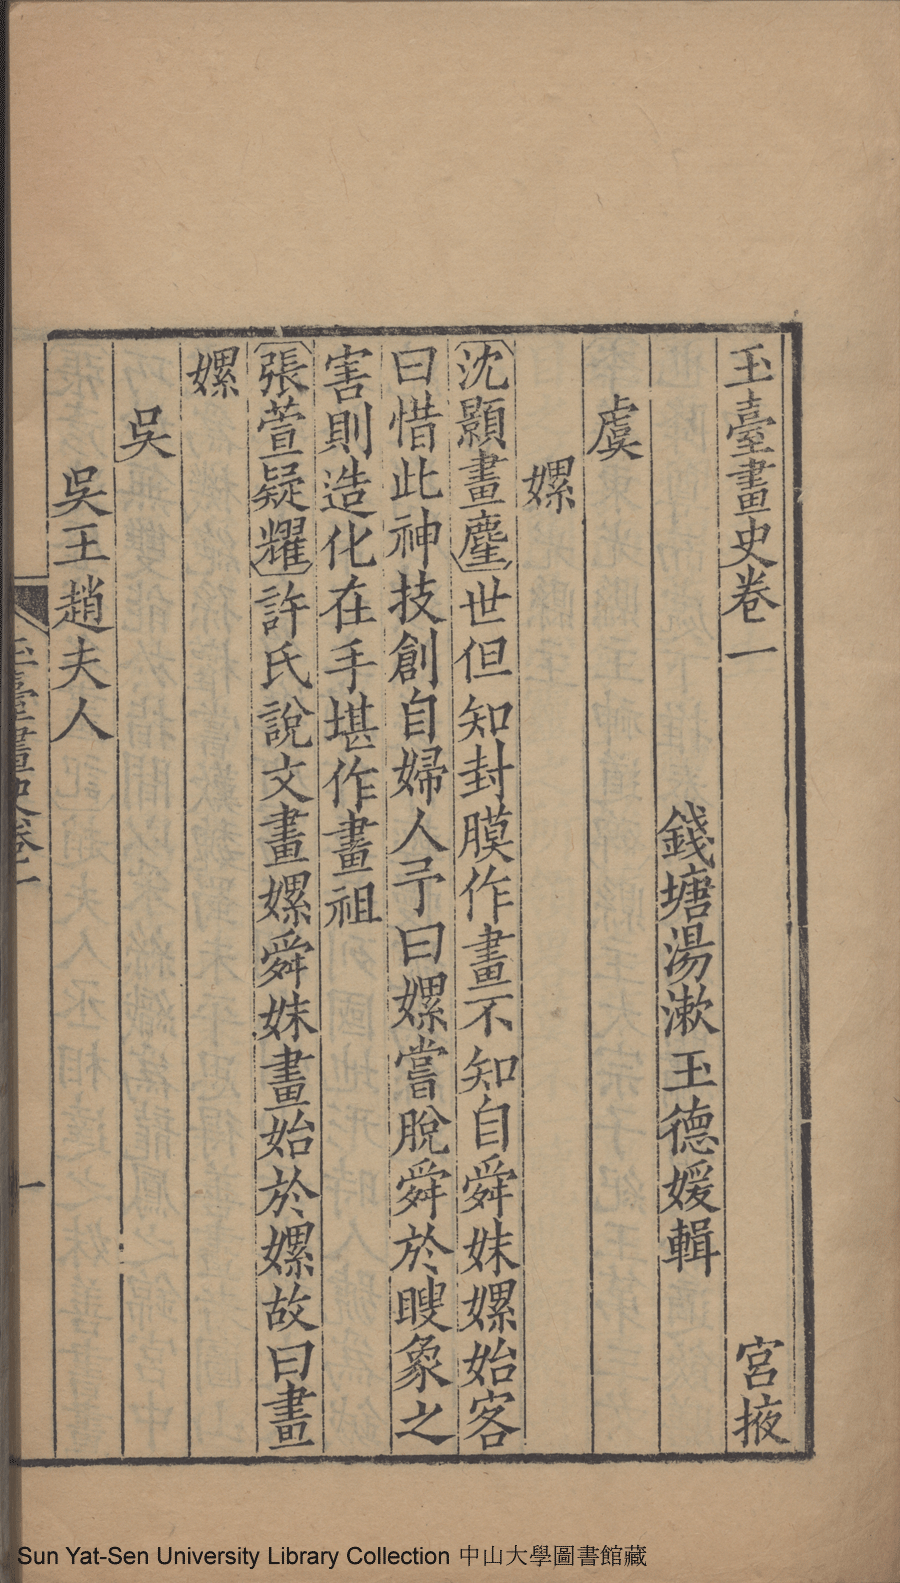 玉臺畫史卷一 宮掖
錢塘湯漱玉德媛輯
虞
嫘
〔沈顥畫麈〕世但知封膜作畫不知自舜妹嫘始客
曰惜此神技創自婦人予曰嫘嘗脫舜於瞍象之
害則造化在手堪作畫祖
〔張萱疑耀〕許氏說文畫嫘舜妹畫始於嫘故曰畫
嫘
吳
吳王趙夫人
玉臺畫史卷一 一
Sun Yat-Sen University Library Collection 中山大學圖書館藏